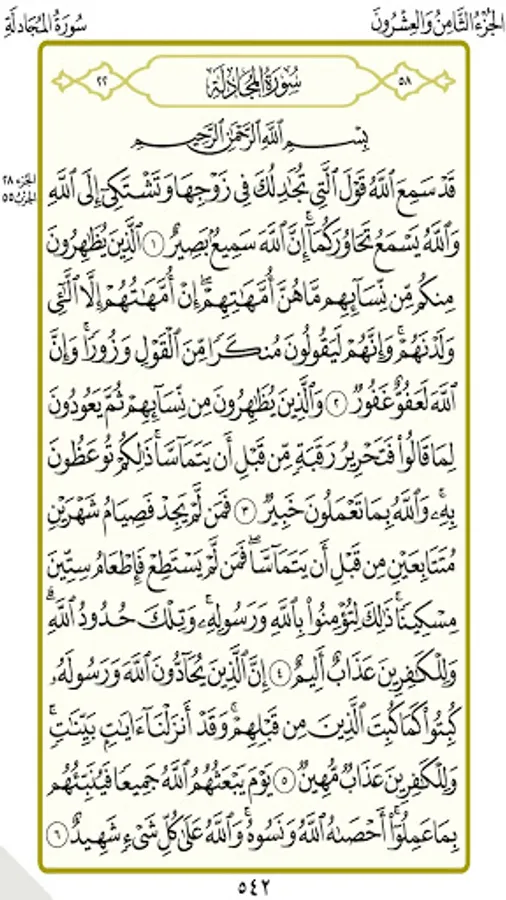 الجُزْءُ الثَّامِنُ وَالْعِشْرُونَ سُورَةُ المُجَادلَةِ
٥٨ سُورَةُ المُجَادلَةِ ٢٢
بِسْمِ ٱللَّهِ ٱلرَّحْمَٰنِ ٱلرَّحِيمِ
الجزء ٢٨
الحزب ٥٥
قَدْ سَمِعَ ٱللَّهُ قَوْلَ ٱلَّتِى تُجَٰدِلُكَ فِى زَوْجِهَا وَتَشْتَكِىٓ إِلَى ٱللَّهِ
وَٱللَّهُ يَسْمَعُ تَحَاوُرَكُمَآ ۚ إِنَّ ٱللَّهَ سَمِيعٌۢ بَصِيرٌ ١ ٱلَّذِينَ يُظَٰهِرُونَ
مِنكُم مِّن نِّسَآئِهِم مَّا هُنَّ أُمَّهَٰتِهِمْ ۖ إِنْ أُمَّهَٰتُهُمْ إِلَّا ٱلَّٰٓـِٔى
وَلَدْنَهُمْ ۚ وَإِنَّهُمْ لَيَقُولُونَ مُنكَرًا مِّنَ ٱلْقَوْلِ وَزُورًا ۚ وَإِنَّ
ٱللَّهَ لَعَفُوٌّ غَفُورٌ ٢ وَٱلَّذِينَ يُظَٰهِرُونَ مِن نِّسَآئِهِمْ ثُمَّ يَعُودُونَ
لِمَا قَالُوا۟ فَتَحْرِيرُ رَقَبَةٍ مِّن قَبْلِ أَن يَتَمَآسَّا ۚ ذَٰلِكُمْ تُوعَظُونَ
بِهِۦ ۚ وَٱللَّهُ بِمَا تَعْمَلُونَ خَبِيرٌ ٣ فَمَن لَّمْ يَجِدْ فَصِيَامُ شَهْرَيْنِ
مُتَتَابِعَيْنِ مِن قَبْلِ أَن يَتَمَآسَّا ۖ فَمَن لَّمْ يَسْتَطِعْ فَإِطْعَامُ سِتِّينَ
مِسْكِينًا ۚ ذَٰلِكَ لِتُؤْمِنُوا۟ بِٱللَّهِ وَرَسُولِهِۦ ۚ وَتِلْكَ حُدُودُ ٱللَّهِ ۗ
وَلِلْكَٰفِرِينَ عَذَابٌ أَلِيمٌ ٤ إِنَّ ٱلَّذِينَ يُحَآدُّونَ ٱللَّهَ وَرَسُولَهُۥ
كُبِتُوا۟ كَمَا كُبِتَ ٱلَّذِينَ مِن قَبْلِهِمْ ۚ وَقَدْ أَنزَلْنَآ ءَايَٰتٍۭ بَيِّنَٰتٍ ۚ
وَلِلْكَٰفِرِينَ عَذَابٌ مُّهِينٌ ٥ يَوْمَ يَبْعَثُهُمُ ٱللَّهُ جَمِيعًا فَيُنَبِّئُهُم
بِمَا عَمِلُوٓا۟ ۚ أَحْصَىٰهُ ٱللَّهُ وَنَسُوهُ ۚ وَٱللَّهُ عَلَىٰ كُلِّ شَىْءٍ شَهِيدٌ ٦
٥٤٢